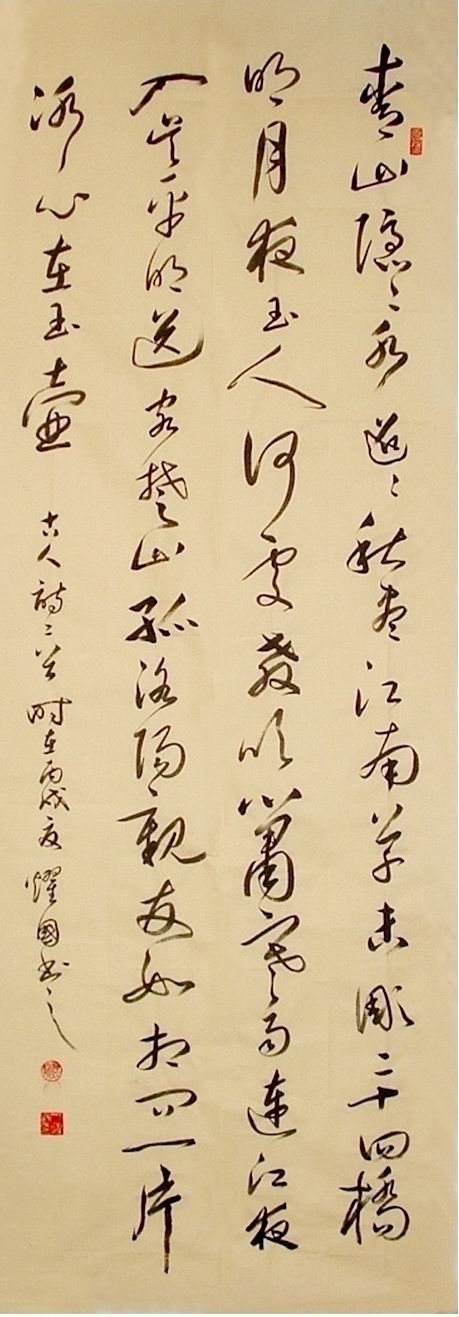 青山隱々水迢々秋盡江南草未彫二十四橋
明月夜玉人何處教吹簫寒雨連江夜
入吴平明送客楚山孤洛陽親友如相问一片
冰心在玉壺
古人詩二首 时在丙戌夏 耀國书之